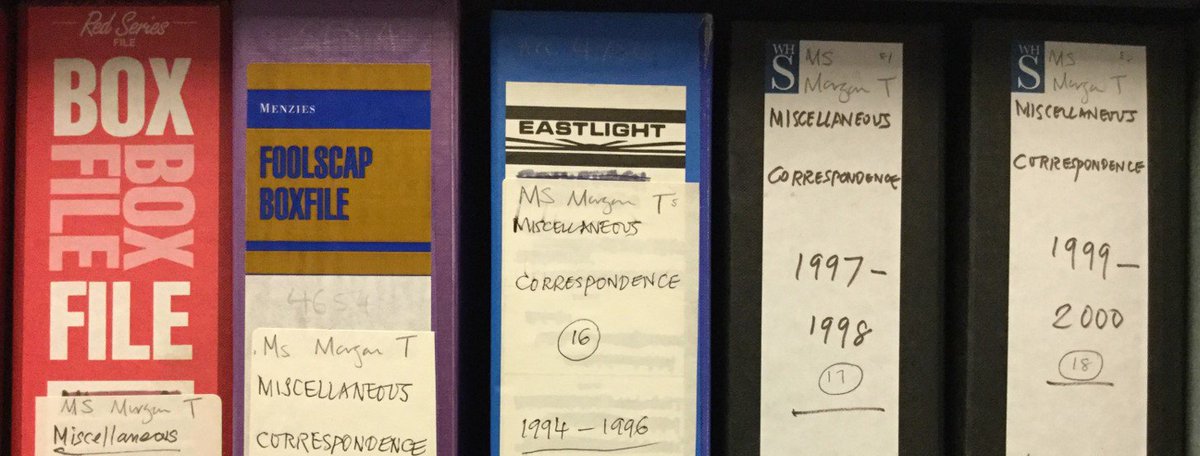 Red Series
FILE
BOX
FILE
BOX
FILE
MS Morgan T
Miscellaneous
MENZIES
FOOLSCAP
BOXFILE
4654
Ms Morgan T
MISCELLANEOUS
CORRESPONDENCE
EASTLIGHT
MS Morgan T
MISCELLANEOUS
CORRESPONDENCE
16
1994 - 1996
WH
S
MS
Morgan T
MISCELLANEOUS
CORRESPONDENCE
1997-
1998
17
WH
S
MS
Morgan T
MISCELLANEOUS
CORRESPONDENCE
1999-
2000
18